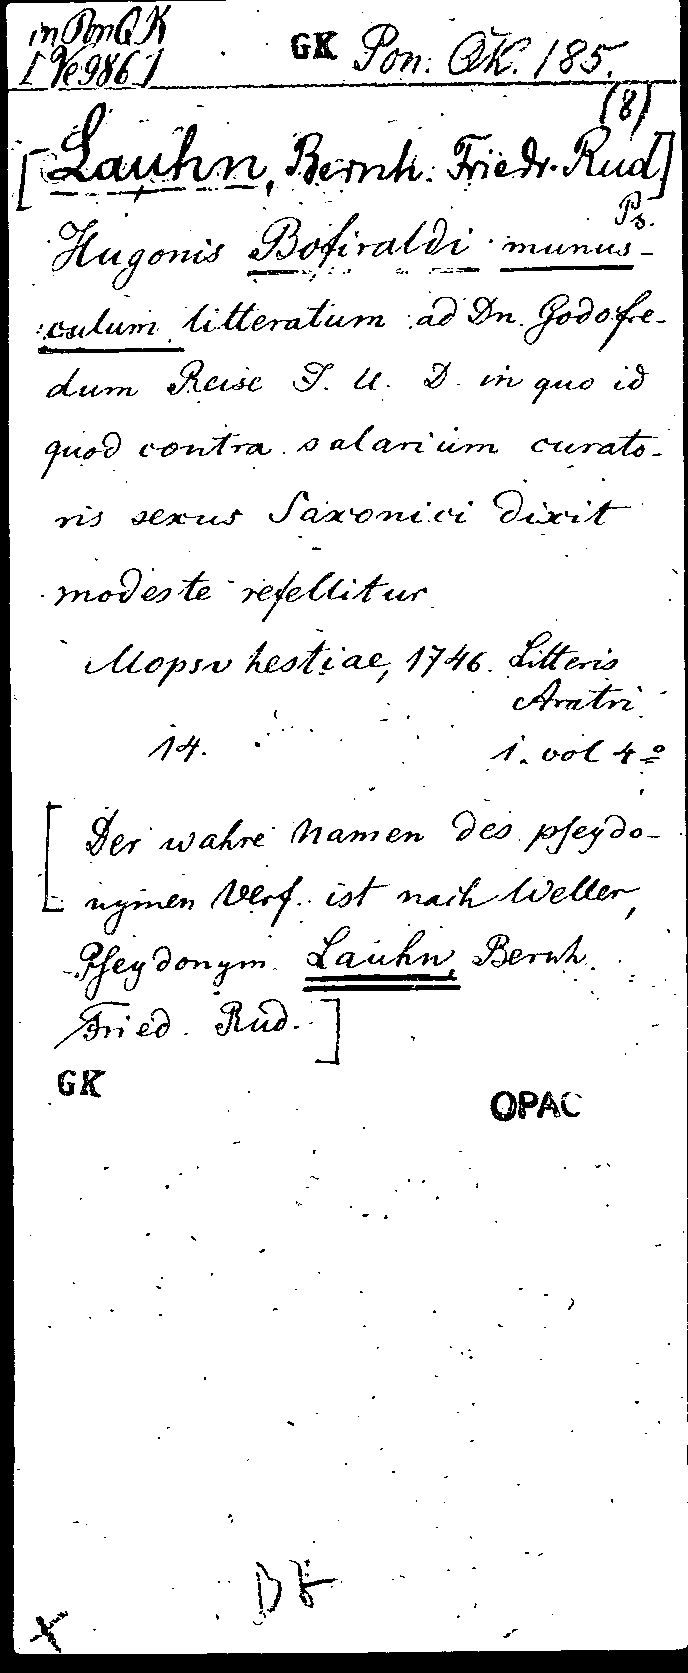 in Pon QK
[Ve 986]
GK Pon: QK. 185.
(8)
[Lauhn, Bernh. Friedr. Rud]
Ps.
Hugonis Bofiraldi munus-
culum litteratum ad Dn. Godofre-
dum Reise J. U. D. in quo id
quod contra salarium curato-
ris sexus Saxonici dixit
modeste refellitur
Mopsvhestiae, 1746. Litteris
Aratri
14. 1. vol 4º
[Der wahre Namen des pseydo-
nymen Verf. ist nach Weller,
Pseydonym Lauhn, Bernh.
Fried. Rud.]
GK
OPAC